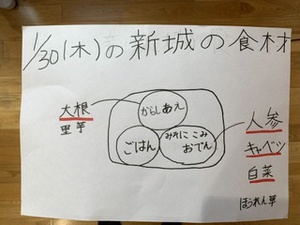 1/30(木)の新城の食材
大根
里芋
からしあえ
ごはん
みそにこみ
おでん
人参
キャベツ
白菜
ほうれん草